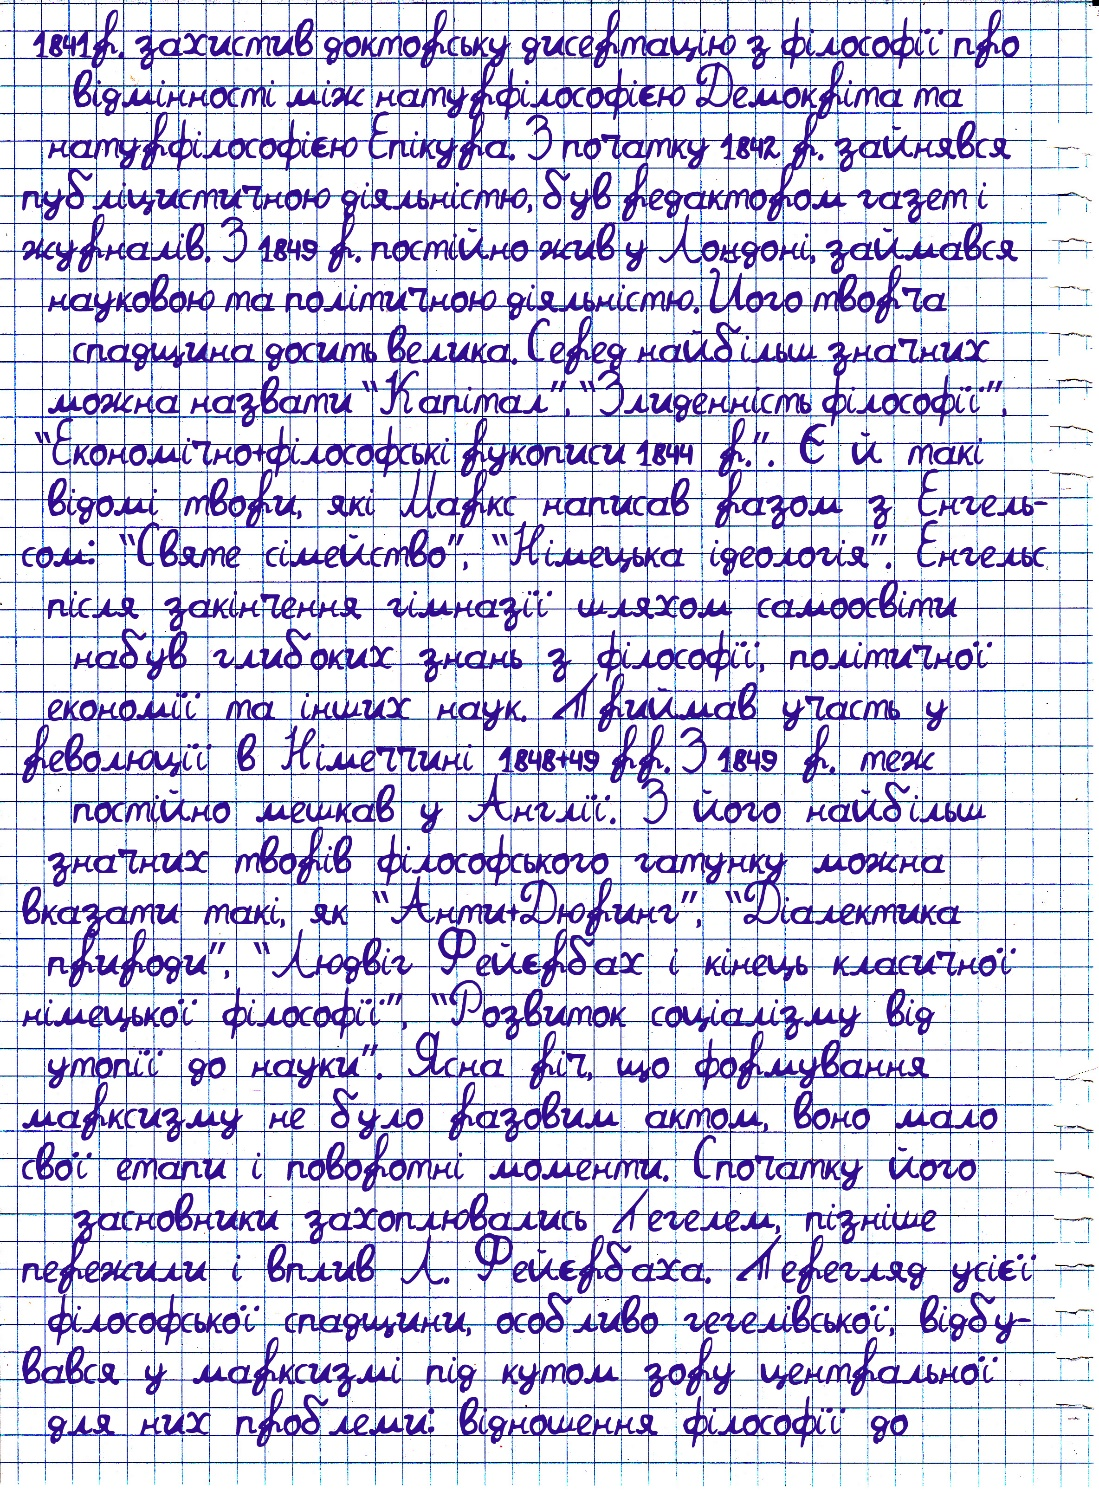 1841р. захистив докторську дисертацію з філософії про
відмінності між натурфілософією Демокріта та
натурфілософією Епікура. З початку 1842 р. зайнявся
публіцистичною діяльністю, був редактором газет і
журналів. З 1849 р. постійно жив у Лондоні, займався
науковою та політичною діяльністю. Його творча
спадщина досить велика. Серед найбільш значних
можна назвати "Капітал", "Злиденність філософії",
"Економічно+філософські рукописи 1844 р.". Є й такі
відомі твори, які Маркс написав разом з Енгель-
сом: "Святе сімейство", "Німецька ідеологія". Енгельс
після закінчення гімназії шляхом самоосвіти
набув глибоких знань з філософії, політичної
економії та інших наук. Приймав участь у
революції в Німеччині 1848+49 рр. З 1849 р. теж
постійно мешкав у Англії. З його найбільш
значних творів філософського гатунку можна
вказати такі, як "Анти+Дюринг", "Діалектика
природи", "Людвіг Фейєрбах і кінець класичної
німецької філософії", "Розвиток соціалізму від
утопії до науки". Ясна річ, що формування
марксизму не було разовим актом, воно мало
свої етапи і поворотні моменти. Спочатку його
засновники захоплювались Гегелем, пізніше
пережили і вплив Л. Фейєрбаха. Перегляд усієї
філософської спадщини, особливо гегелівської, відбу-
вався у марксизмі під кутом зору центральної
для них проблеми: відношення філософії до